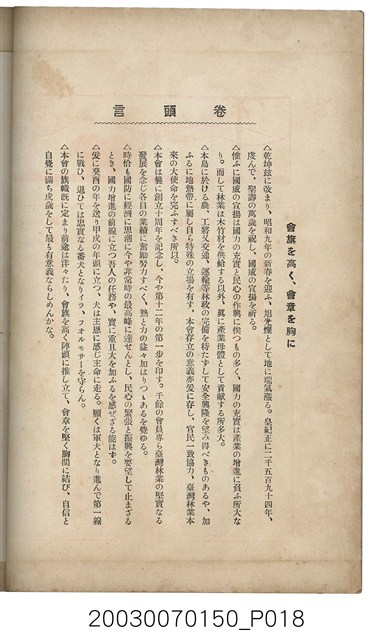 卷頭言
會旗を高く、會章を胸に
△乾坤玆に改まり、昭和九年の新春を迎ふ、旭光燦として地に瑞氣漲る。皇紀正に二千五百九十四年、
虔んで、聖壽の萬歲を祝し、國威の宣揚を祈る。
△惟ふに國威の宣揚は國力の充實と民心の作興に俟つもの多く、國力の充實は產業の增進に負ふ所大な
り。而して林業は木竹材を供給する以外、眞に產業母體として貢獻する所多大。
△本島に於ける農、工將又交通、運輸等林政の完備を待たずして安全興隆を望み得べきものあるや、加
ふるに地熱帶に屬し自ら特殊の立場を有す、本會存立の意義亦爰に存し、官民一致協力、臺灣林業本
來の大使命を完ふすべき所以。
△本會は曩に創立十周年を記念し、今や第十二年の第一步を印す。千餘の會員專ら臺灣林業の堅實なる
發展を念じ各自の業績に奮勵努力すべく、熱と力の益々加はりつゝあるを覺ゆる。
△時恰も國防に經濟に思潮に今や非常時の最高峰に達せんとし、民心の緊張と振興を要望して止まざる
とき、國力增進の前線に立つ吾人の任務や、實に重且大を加ふるを感ぜざる能はず。
△爰に癸酉の年を送り甲戌の年頭に立つ、犬は主恩に感じ主命に走る。願くは軍犬となり進んで第一線
に戰ひ、退ひては忠實なる番犬となりイラ、フオルモサーを守らん。
△本會の旗幟既に定まり前途は洋々たり、會旗を高く陣頭に推し立て、會章を堅く胸間に結び、自信と
自覺に滿ち戌歲をして最も有意義ならしめんかな。
20030070150_P018